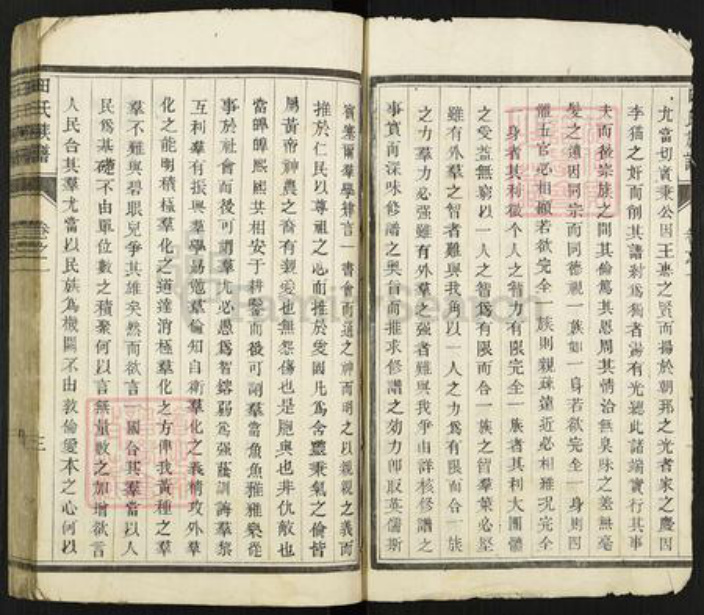 尤當切實秉公因王惠之賢而揚於朝邦之光者家之慶因
李猫之奸而削其譜對爲獨者湯有光聽此諸端實行其事
夫而後宗族之間其倫篤其恩周其情洽無臭味之差無毫
髮之遠因同宗而同德視一族如一身若欲完全一身則四
體五官必相顧若欲完全一族則親疎遠近必相維况完全
身者其利微个人之智力有限完全一族者其利大團體
之受益無窮以一人之智爲有限而合一族之智羣策必堅
雖有外羣之智者難與我角以一人之力爲有限而合一族
之力羣力必强雖有外羣之强者難與我爭由詳核修譜之
事實而深味修譜之奥旨而推求修譜之効力卽取英儒斯
賓塞爾羣學肄言一書會而通之神而明之以親親之義而
推於仁民以尊祖之心而推於愛國凡爲含靈秉氣之倫皆
屬黃帝神農之裔有親愛也無怨傷也是胞與也非仇敵也
當皥皥熙國共相安于耕鑿而後可謂羣當魚魚雅雅樂從
事於社會而後可謂羣尤必愚爲智鎔弱爲强蔭訓誨羣黎
互利羣有振興羣學易蒐羣倫知自衛羣化之義精攻外羣
化之能明積極羣化之道達消極羣化之方俾我黃種之羣
羣不難與碧眼兒爭其雄矣然而欲言一國合其羣當以人
民爲基礎不由單位數之積聚何以言無量數之加增欲言
人民合其羣尤當以民族為機關不由敦倫愛本之心何以
田氏族譜
卷之一
三
FamilySearch